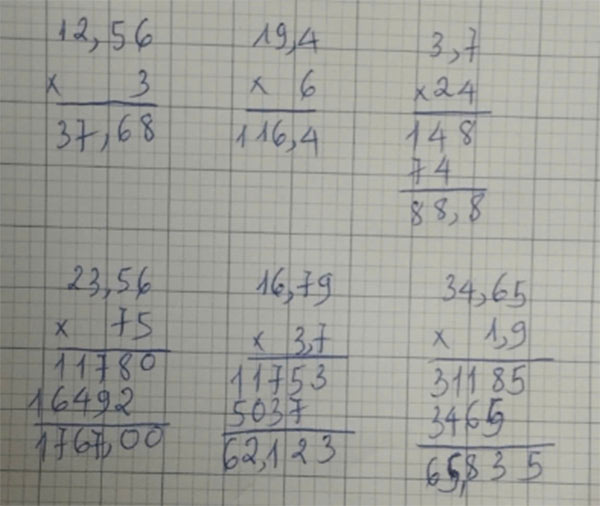 12,56 19,4 3,7
x 3 x 6 x24
37,68 116,4 148
74
88,8
23,56 16,79 34,65
x 75 x 3,7 x 1,9
11780 11753 31185
16492 5037 3465
1767,00 62,123 65,835